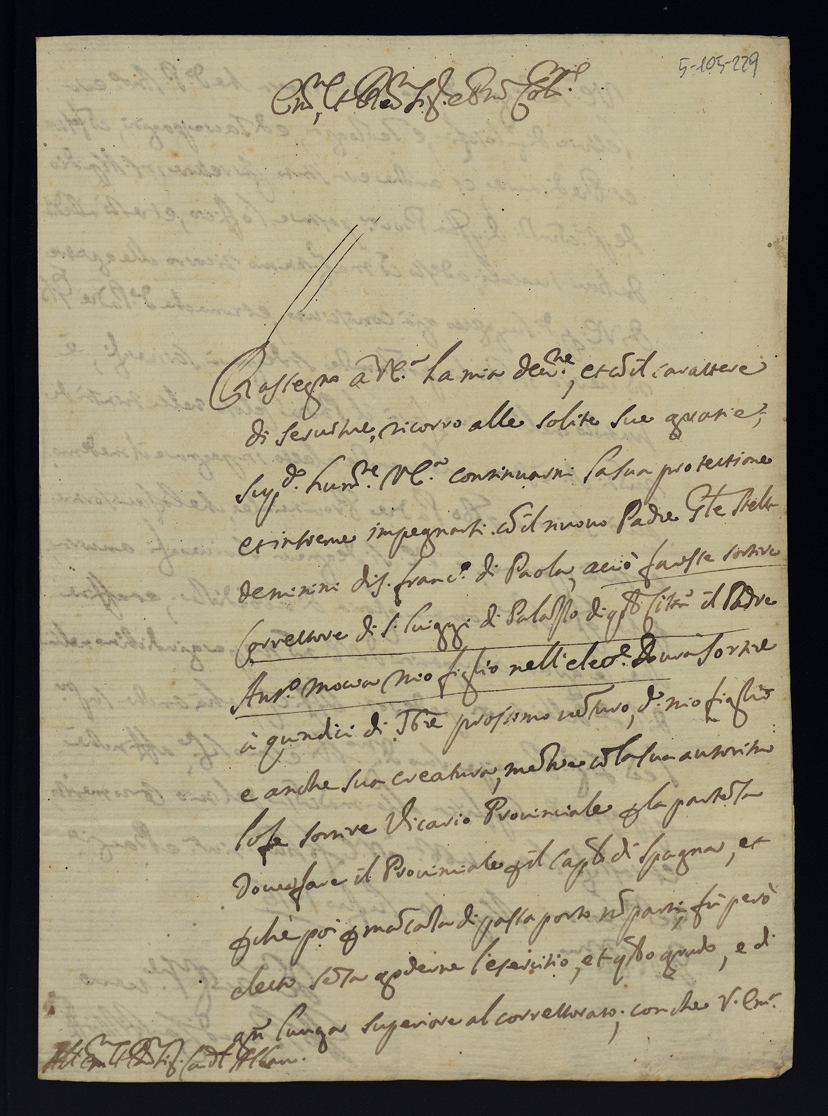 5-105-229
Em.mo et R.mo Sig.r e P.rone Col.mo
Rassegno a V. Em.a la mia dev.ne, et cõ il carattere
di servitore, ricorro alle solite sue gratie,
sup.do hum.te V. Em.a continuarmi la sua protettione
et insieme impegnarsi cõ il nuovo Padre G̅le Stella
de minimi di S. Franc.o di Paola, acciò facesse sortire
Correttore di S. Luiggi di Palazzo di q̅sta Città il Padre
Ant.o mio figlio nell'elet.e dovrà sortire
à quindici di 7bre prossimo venturo, d.o mio figlio
e anche sua creatura, mentre cõ la sua autorità
lo fe sortire Vicario Provinciale ꝑ la partenza
dovea fare il Provinciale ꝑ il cap.lo di Spagna, et
ꝑchè poi ꝑ mãcanza di passaporto nõ partì, fù però
eletto senza l'esercitio, et q̅sto grado, e di
grã lunga superiore al correttorato; con che V. Em.a
Em.mo et R.mo Sig. Card.l Alban.